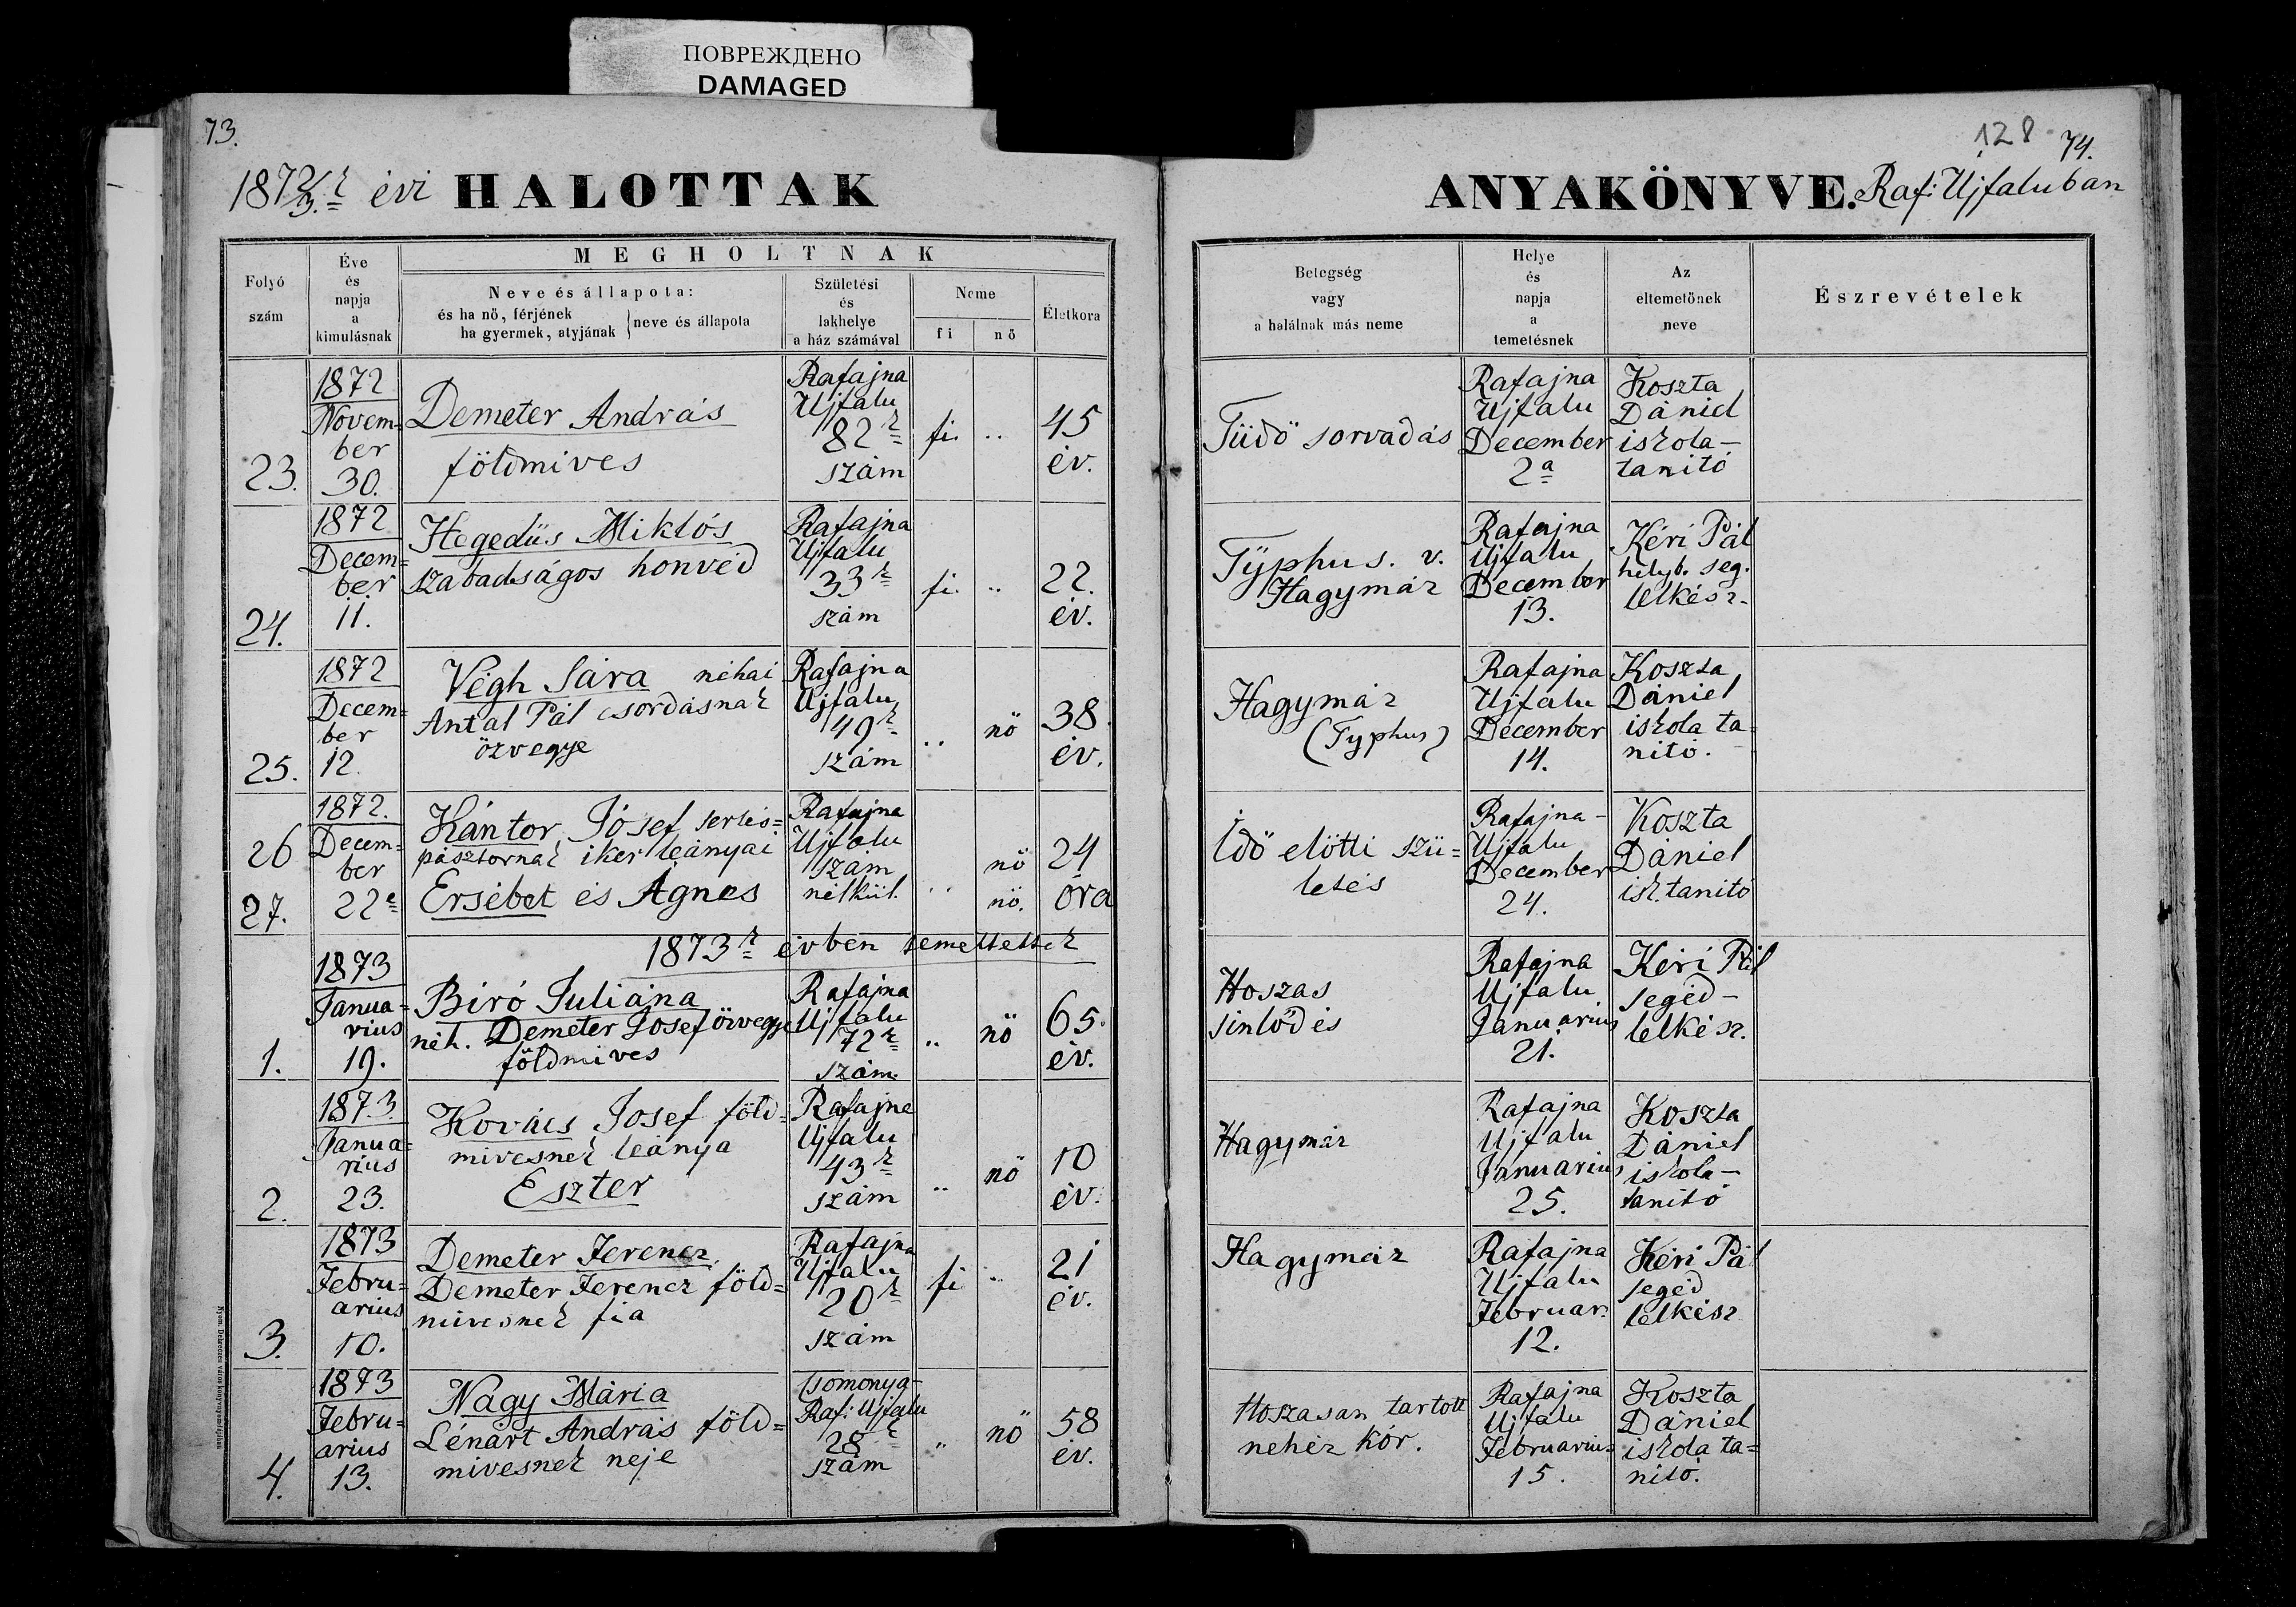 ПОВРЕЖДЕНО
DAMAGED
73.
128
74.
1872/3.k évi HALOTTAK
ANYAKÖNYVE. Raf: Ujfaluban
Folyó
szám
Éve
és
napja
a
kimulásnak
MEGHOLTNAK
Neve és állapota:
és ha nő, férjének
ha gyermek, atyjának
neve és állapota
Születési
és
lakhelye
a ház számával
Neme
fi
nő
Életkora
Betegség
vagy
a halálnak más neme
Helye
és
napja
a
temetésnek
Az
eltemetőnek
neve
Észrevételek
23.
1872
Novem=
ber
30.
Demeter András
földmives
Rafajna
Ujfalu
82k
szám
fi.
..
45
év.
Tüdő sorvadás
Rafajna
Ujfalu
December
2a
Koszta
Dániel
iskola-
tanitó
24.
1872
Decem=
ber
11.
Hegedüs Miklós
szabadságos honvéd
Rafajna
Ujfalu
33k
szám
fi.
..
22.
év.
Typhus. v.
Hagymáz
Rafajna
Ujfalu
December
13.
Kéri Pál
helyb. seg.
lelkész.
25.
1872
Decem=
ber
12.
Végh Sára néhai
Antal Pál csordásnak
özvegye
Rafajna
Ujfalu
49k
szám
..
nö
38.
év.
Hagymáz
(Typhus)
Rafajna
Ujfalu
December
14.
Koszta
Dániel
iskola ta=
nitó.
26
27.
1872.
Decem=
ber
22a
Kántor Jósef sertés=
pásztornak iker leányai
Ersébet és Ágnes
Rafajna
Ujfalu
szám
nélkül.
..
nö
nö.
24
óra
Idő előtti szü=
letés
Rafajna-
Ujfalu
December
24.
Koszta
Dániel
isk. tanitó
1873k évben temettettek
1.
1873
Janua-
rius
19.
Biró Juliána
néh. Demeter Josef özvegye
földmives
Rafajna
Ujfalu
72k
szám.
..
nö
65.
év.
Hoszas
sinlődés
Rafajna
Ujfalu
Januarius
21.
Kéri Pál
segéd-
lelkész.
2.
1873.
Janua=
rius
23.
Kovács Josef föld=
mivesnek leánya
Eszter
Rafajna
Ujfalu
43k
szám
..
nö
10
év.
Hagymáz
Rafajna
Ujfalu
Januarius
25.
Koszta
Dániel
iskola-
tanitó
3.
1873
Febru=
arius
10.
Demeter Ferencz
Demeter Ferencz föld=
mivesnek fia
Rafajna
Ujfalu
20k
szám
fi
..
21
év.
Hagymáz
Rafajna
Ujfalu
Februar.
12.
Kéri Pál
segéd
lelkész
4.
1873
Febru=
arius
13.
Nagy Mária
Lénárt András föld=
mivesnek neje
Csomonya-
Raf: Ujfalu
28k
szám
..
nö
58
év.
Hoszasan tartott
nehéz kór.
Rafajna
Ujfalu
Februarius
15.
Koszta
Dániel
iskola ta=
nitó.